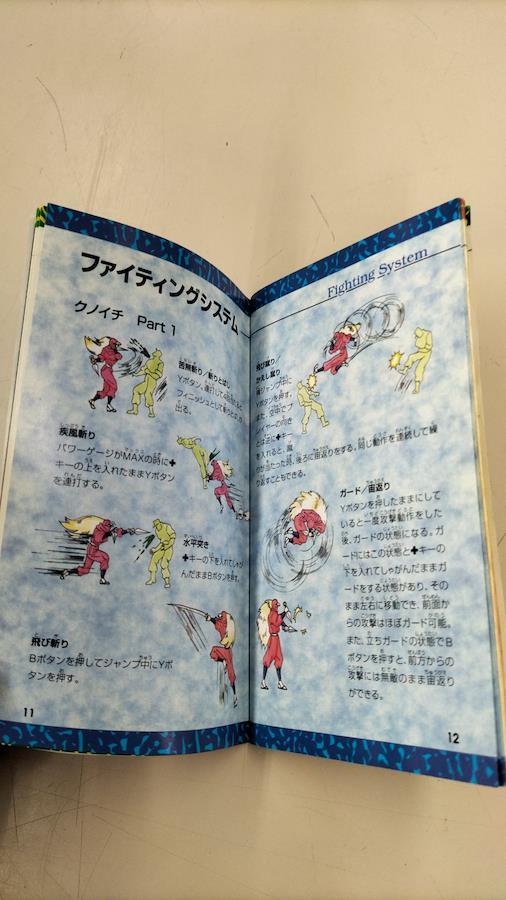 ファイティングシステム
クノイチ Part 1
苦無斬り/斬りとばし
Yボタン。連打して
フィニッシュとして斬りとばしが
出る。
疾風斬り
パワーゲージがMAXの時に✚
キーの上を入れたままYボタン
を連打する。
水平突き
✚キーの下を入れてしゃが
んだままBボタンを押す。
飛び斬り
Bボタンを押してジャンプ中にYボ
タンを押す。
11
Fighting System
飛び蹴り/
かえし蹴り
横ジャンプ中に
Yボタンを押す。
また、空中でプ
レイヤーの向き
とは逆に✚キー
を入れると、蹴
りが当たった時、後ろに宙返りをする。同じ動作を連続して繰
り返すこともできる。
ガード/宙返り
Yボタンを押したままにして
いると一度攻撃動作をした
後、ガードの状態になる。ガ
ードにはこの状態と✚キーの
下を入れてしゃがんだままガ
ードをする状態があり、その
まま左右に移動でき、前面か
らの攻撃はほぼガード可能。
また、立ちガードの状態でB
ボタンを押すと、前方からの
攻撃には無敵のまま宙返り
ができる。
12